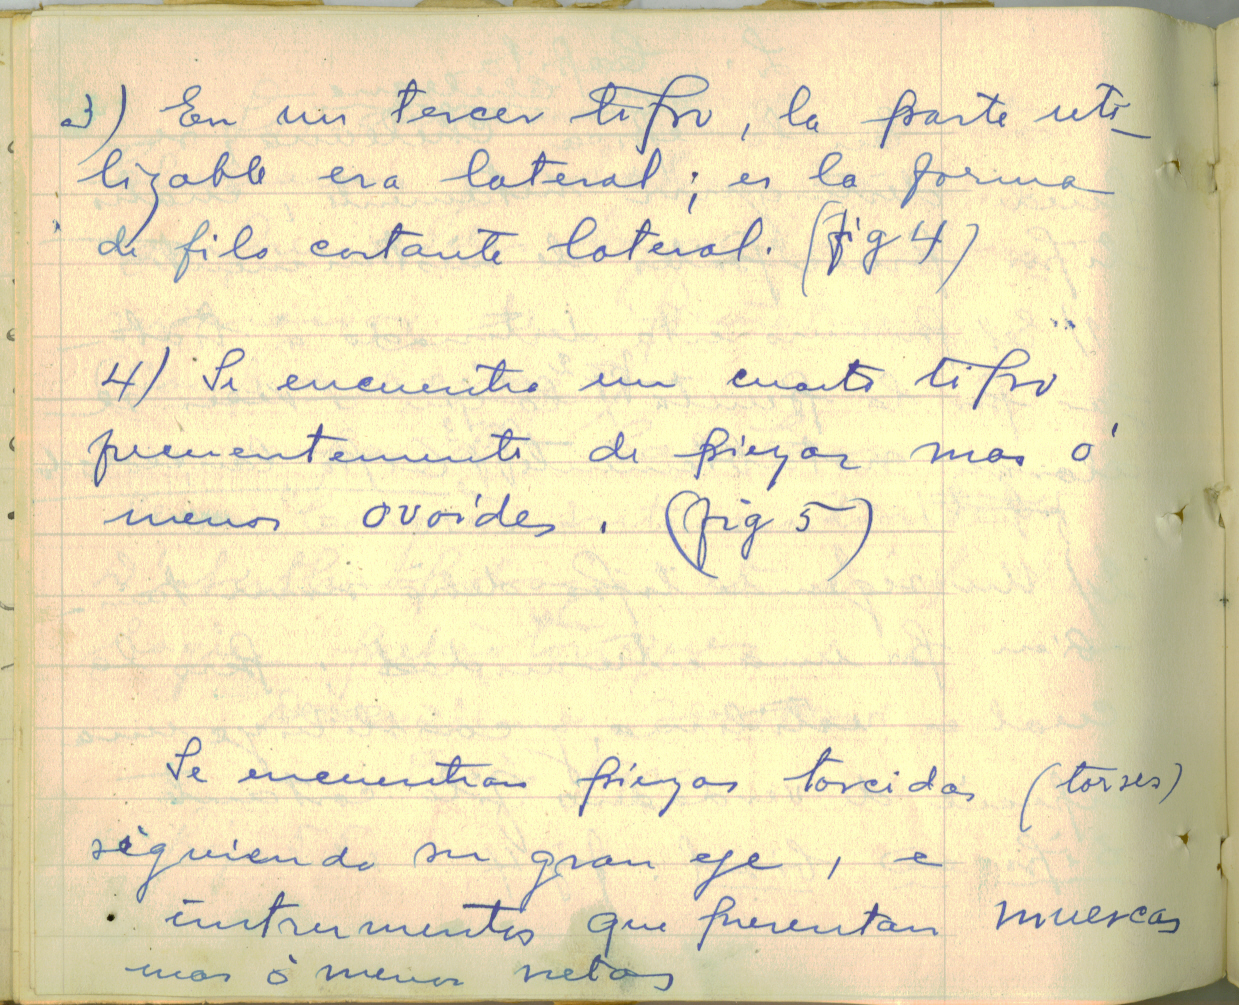 3) En un tercer tipo, la parte uti-
lizable era lateral; es la forma
de filo cortante lateral. (fig 4)
4) Se encuentra un cuarto tipo
frecuentemente de piezas mas ó
menos ovoides. (fig 5)
Se encuentran piezas torcidas (torses)
siguiendo su gran eje, e
instrumentos que presentan muescas
mas ó menos netas